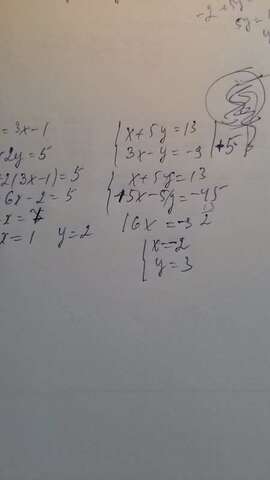 -2+5y=
5y=
y
=3x-1
+2y=5
+2(3x-1)=5
6x-2=5
x=7
x=1 y=2
x+5y=13
3x-y=-9 | ·5
x+5y=13
15x-5y=-45
16x=-32
x=-2
y=3